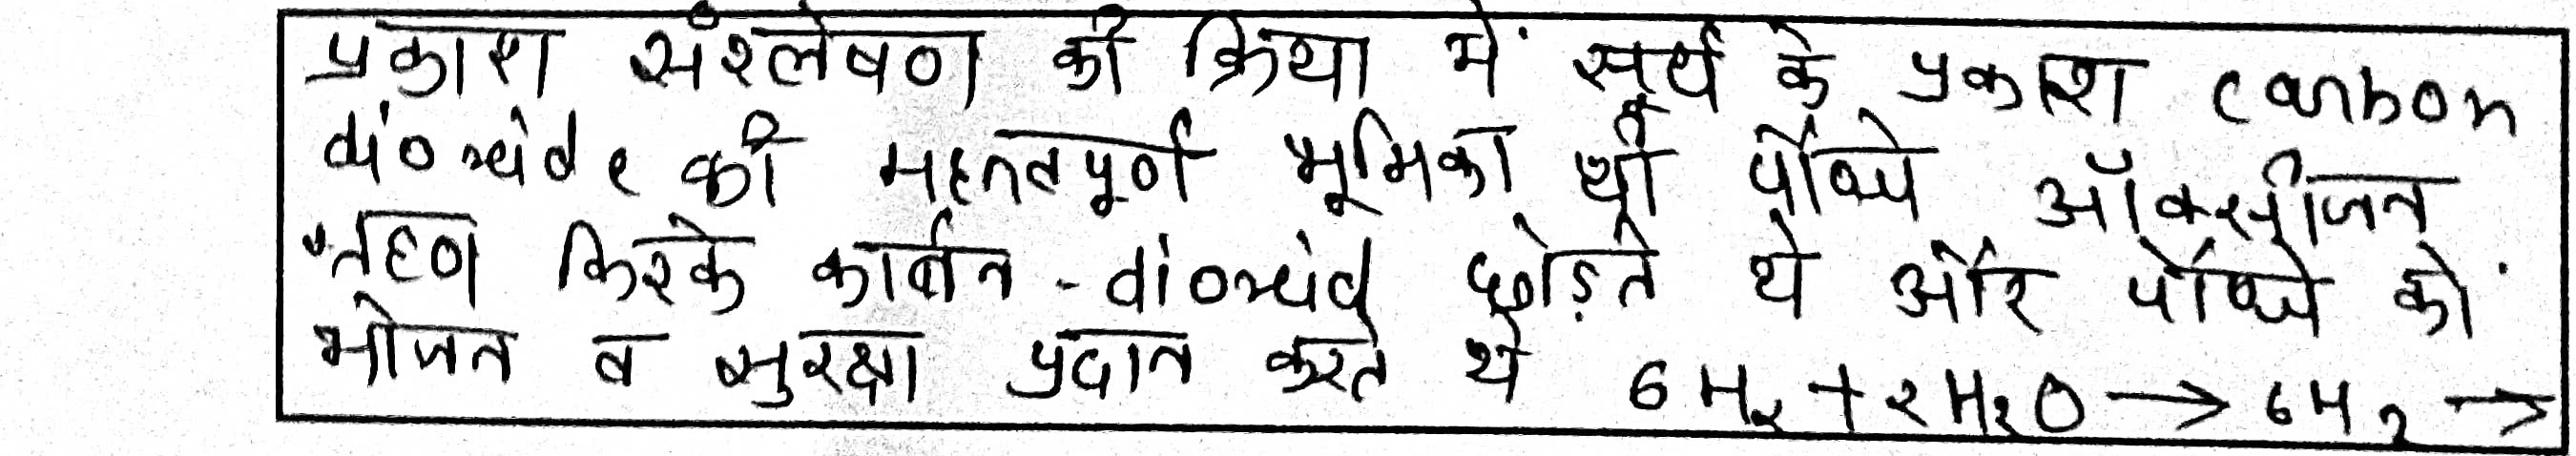 प्रकाश संश्लेषण की क्रिया में सूर्य के प्रकाश carbon
की महत्तवपूर्ण भूमिका थी पौधे ऑक्सीजन
ग्रहण किरके कार्बन - छोड़ते थे और पौधे को
भोजन व सुरक्षा प्रदान करते थे 6H₂ + 2H₂O → 6H₂ →